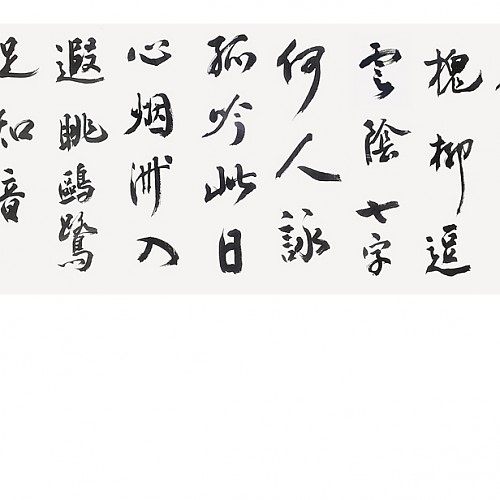 槐柳逗
雲陰七字
何人詠
孤吟此日
心烟洲入
遐眺鷗鷺
足知音